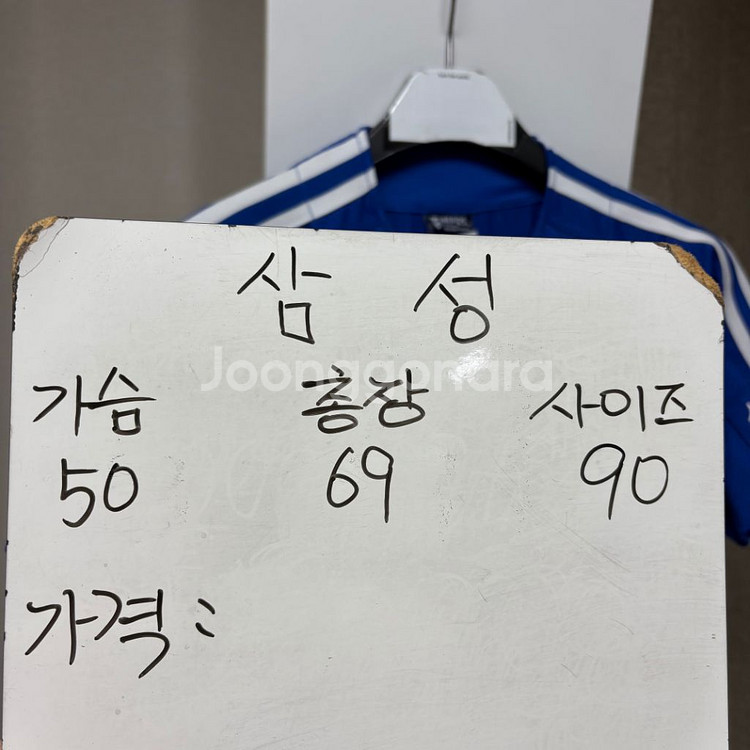 삼 성
Joonggonara
가슴 총장 사이즈
50 69 90
가격 :